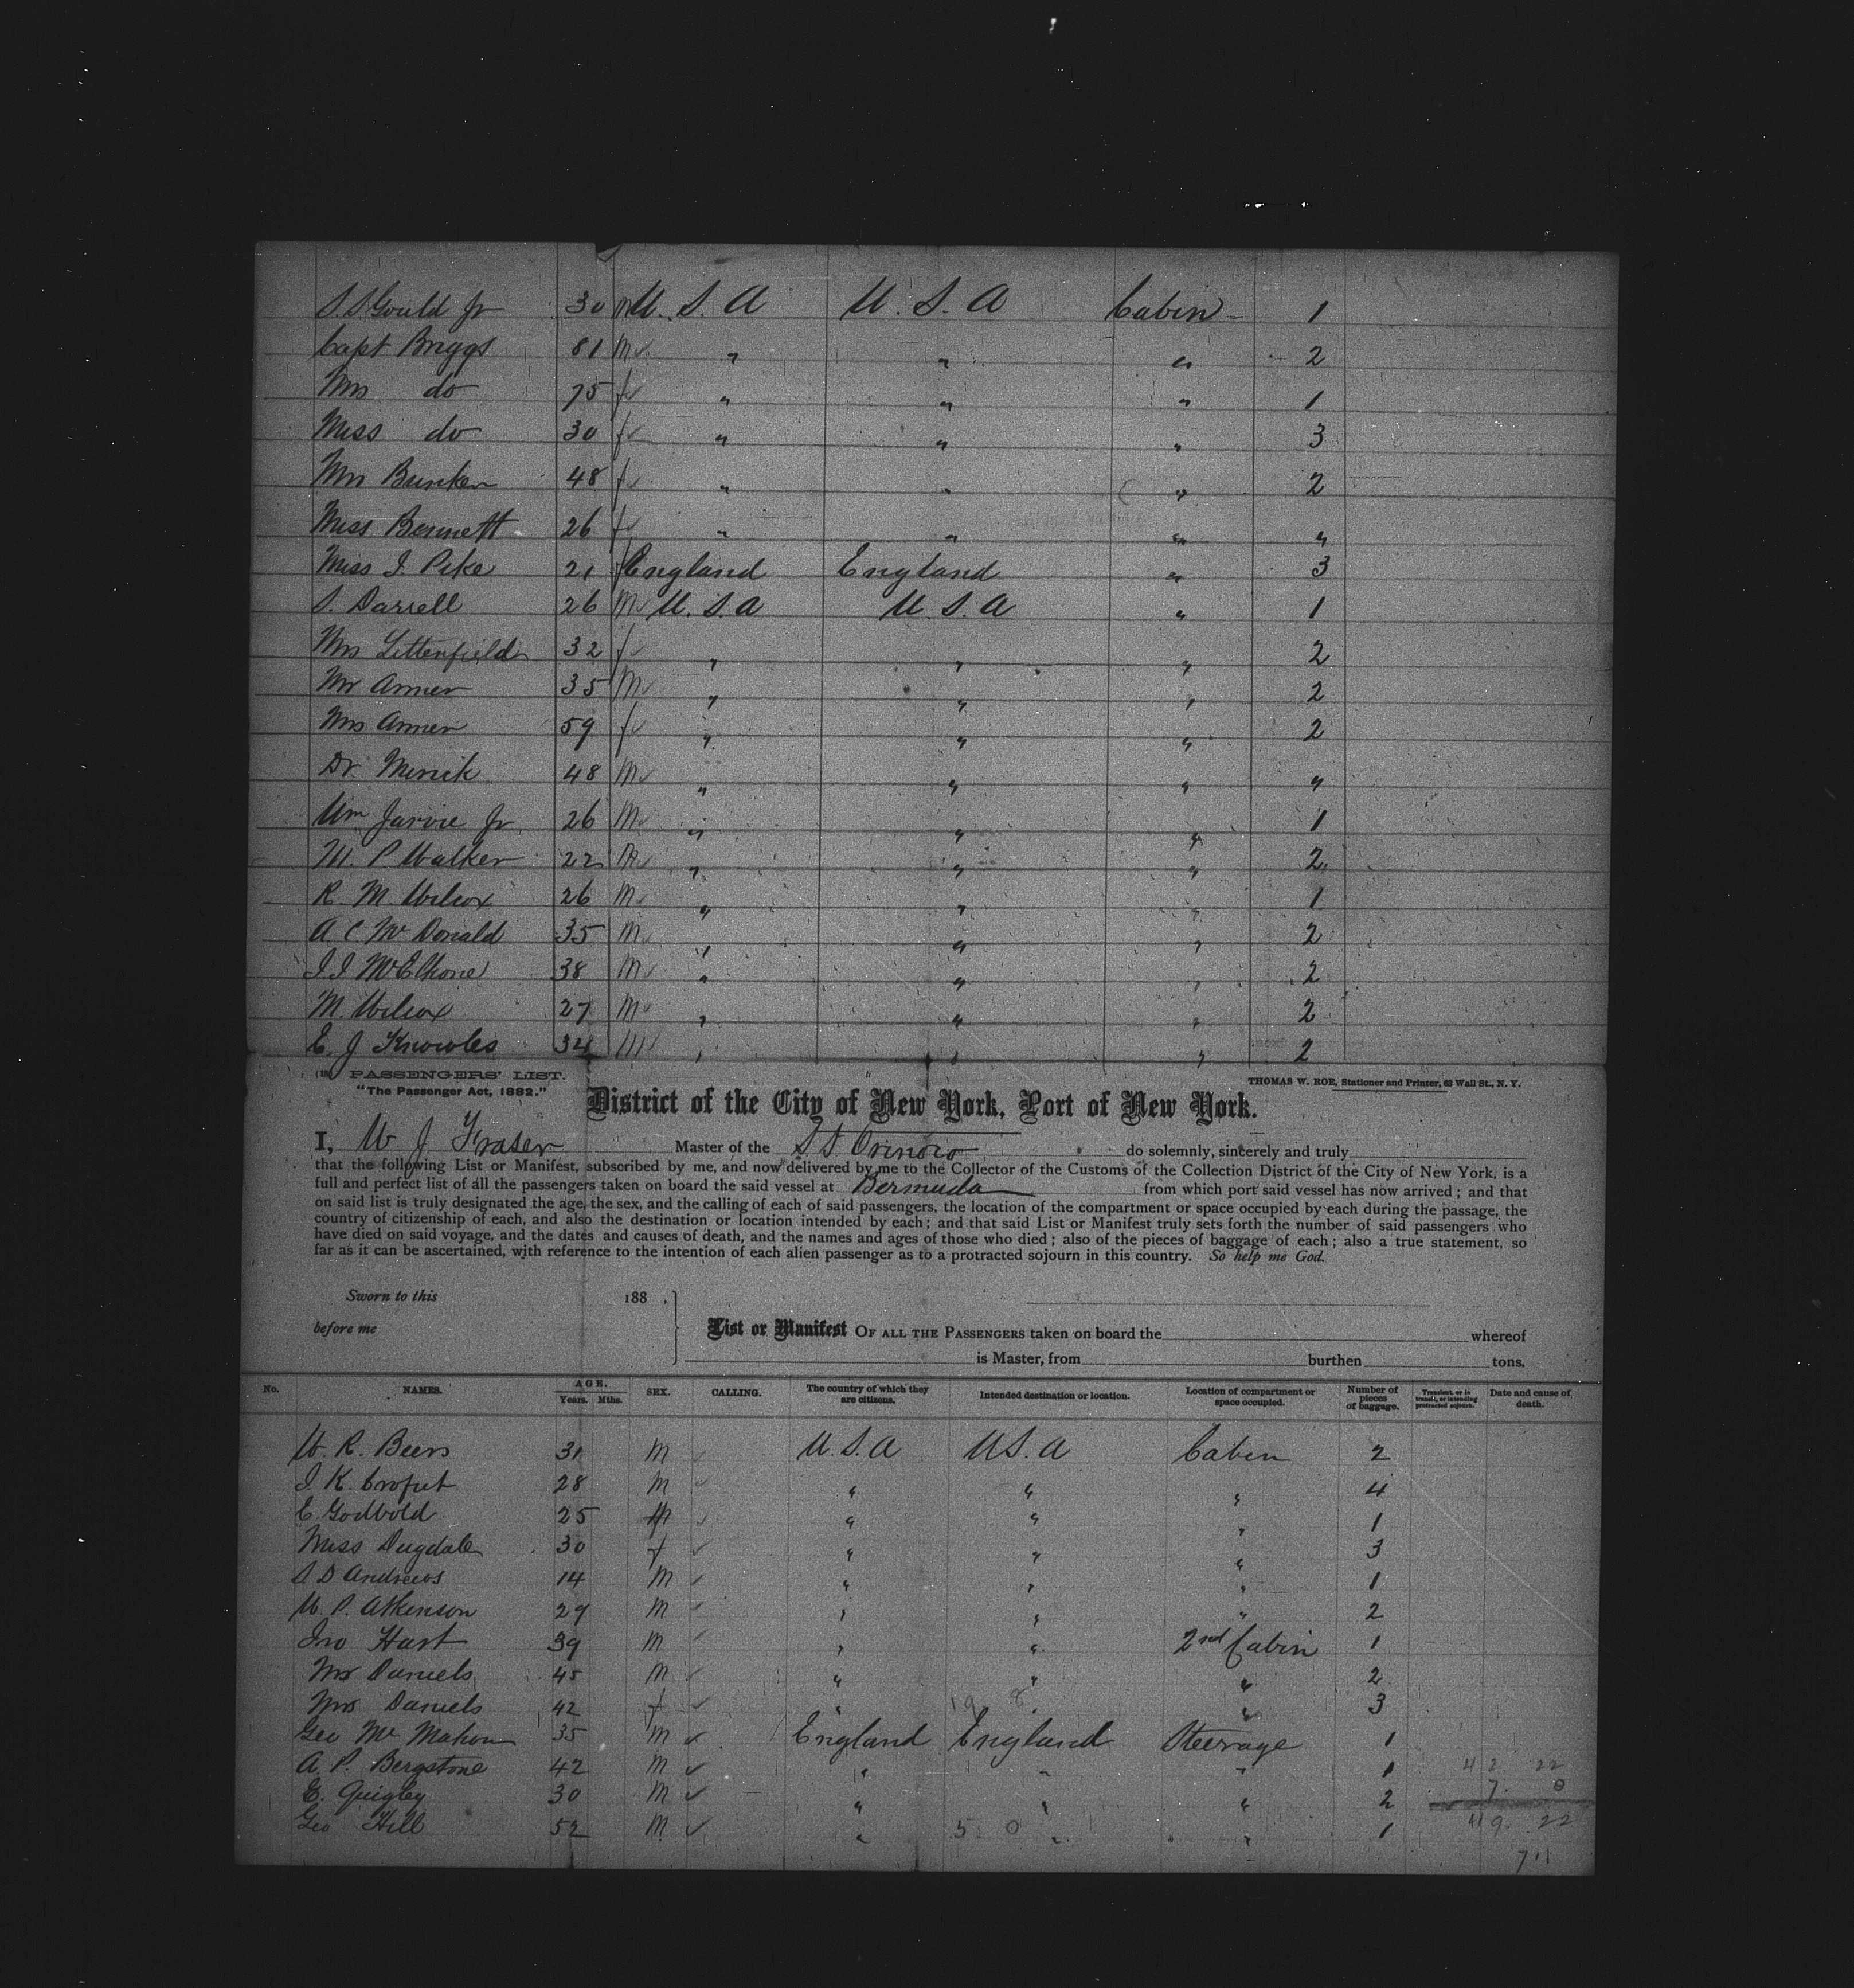 S. S. Gould Jr 30 M U. S. A U. S. A Cabin 1
Capt Briggs 81 M " " " 2
Mrs do 75 f " " " 1
Miss do 30 f " " " 3
Mrs Bunker 48 f " " " 2
Miss Bennett 26 f " " " "
Miss J. Pike 21 f England England " 3
S. Darrell 26 M U. S. A U. S. A " 1
Mrs Littenfield 32 f " " " 2
Mr Armer 35 M " " " 2
Mrs Armer 59 f " " " 2
Dr. Mirick 48 M " " " "
Wm Jarvie Jr 26 M " " " 1
W. P Walker 22 M " " " 2
R. M. Wilcox 26 M " " " 1
A C McDonald 35 M " " " 2
J J McElhone 38 M " " " 2
M. Wilcox 27 M " " " 2
E. J Knowles 34 M " " " 2
PASSENGERS' LIST.
"The Passenger Act, 1882."
THOMAS W. ROE, Stationer and Printer, 63 Wall St., N. Y.
District of the City of New York, Port of New York.
I, W J Fraser Master of the S S Orinoco do solemnly, sincerely and truly
that the following List or Manifest, subscribed by me, and now delivered by me to the Collector of the Customs of the Collection District of the City of New York, is a
full and perfect list of all the passengers taken on board the said vessel at Bermuda from which port said vessel has now arrived; and that
on said list is truly designated the age, the sex, and the calling of each of said passengers, the location of the compartment or space occupied by each during the passage, the
country of citizenship of each, and also the destination or location intended by each; and that said List or Manifest truly sets forth the number of said passengers who
have died on said voyage, and the dates and causes of death, and the names and ages of those who died; also of the pieces of baggage of each; also a true statement, so
far as it can be ascertained, with reference to the intention of each alien passenger as to a protracted sojourn in this country. So help me God.
Sworn to this 188 .
before me
List or Manifest OF ALL THE PASSENGERS taken on board the whereof
is Master, from burthen tons.
No. NAMES. AGE. Years. Mths. SEX. CALLING. The country of which they are citizens. Intended destination or location. Location of compartment or space occupied. Number of pieces of baggage. Transient, or in transit, or intending protracted sojourn. Date and cause of death.
W. R. Beers 31 M U. S. A U S. A Cabin 2
J. K. Crofut 28 M " " " 4
E. Godbold 25 " " " 1
Miss Dugdale 30 f " " " 3
S D Andrews 14 M " " " 1
W. P. Atkinson 29 M " " " 2
Jno Hart 39 M " " 2nd Cabin 1
Mr Daniels 45 M " " " 2
Mrs Daniels 42 f " " 3
Geo McMahon 35 M England England Steerage 1
A. P. Bergstone 42 M " " " 1
E. Quigley 30 M " " " 2
Geo Hill 52 M " " " 1
42 22
7. 0
49. 22